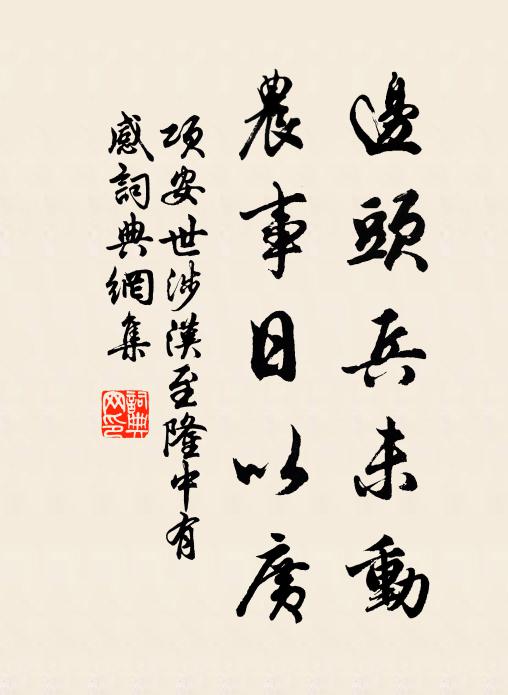 邊頭兵未動
農事日以廣
項安世涉漢至隆中有
感詞典網集
詞典
网印